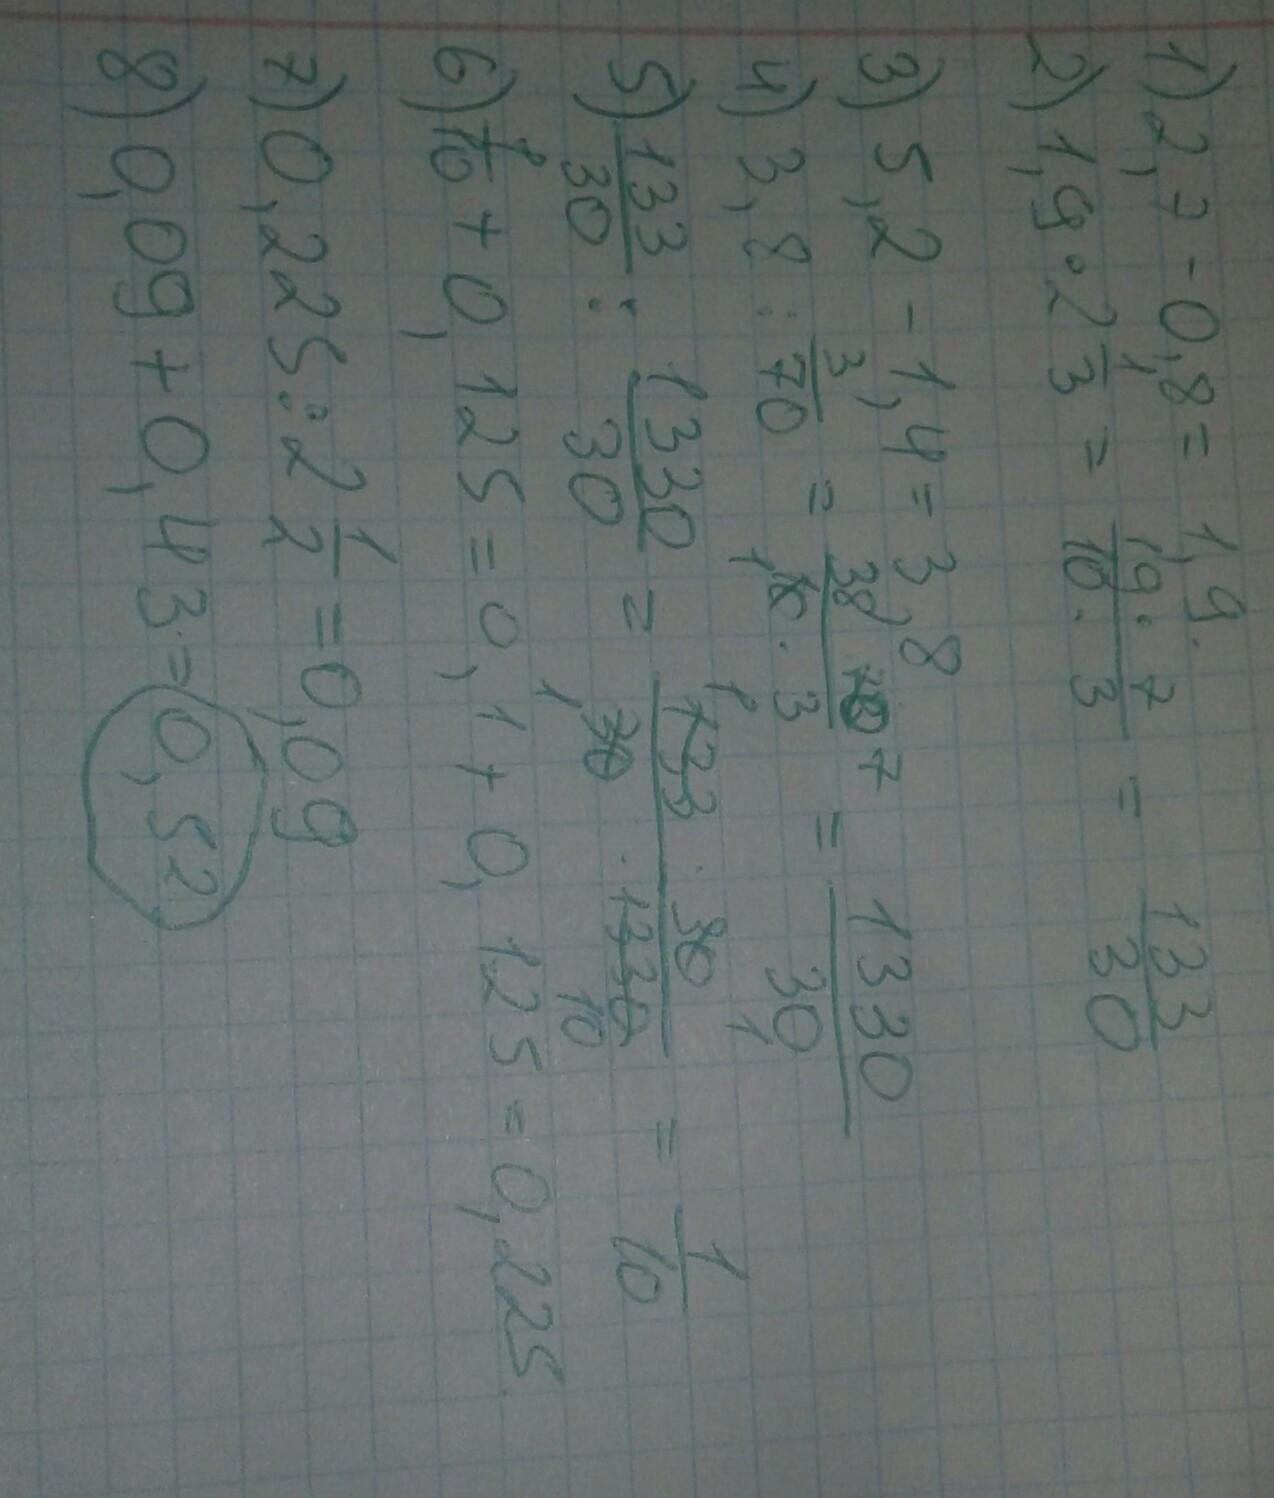 1) 2,7 - 0,8 = 1,9.
2) 1,9 · 2 1/3 = 19 · 7 / 10 · 3 = 133/30
3) 5,2 - 1,4 = 3,8
4) 3,8 : 3/70 = 38 · 70 7 / 10 1 · 3 = 1330/30
5) 133/30 : 1330/30 = 1 133 · 30 1 / 1 30 · 1330 10 = 1/10
6) 1/10 + 0,125 = 0,1 + 0,125 = 0,225
7) 0,225 : 2 1/2 = 0,09
8) 0,09 + 0,43 = 0,52